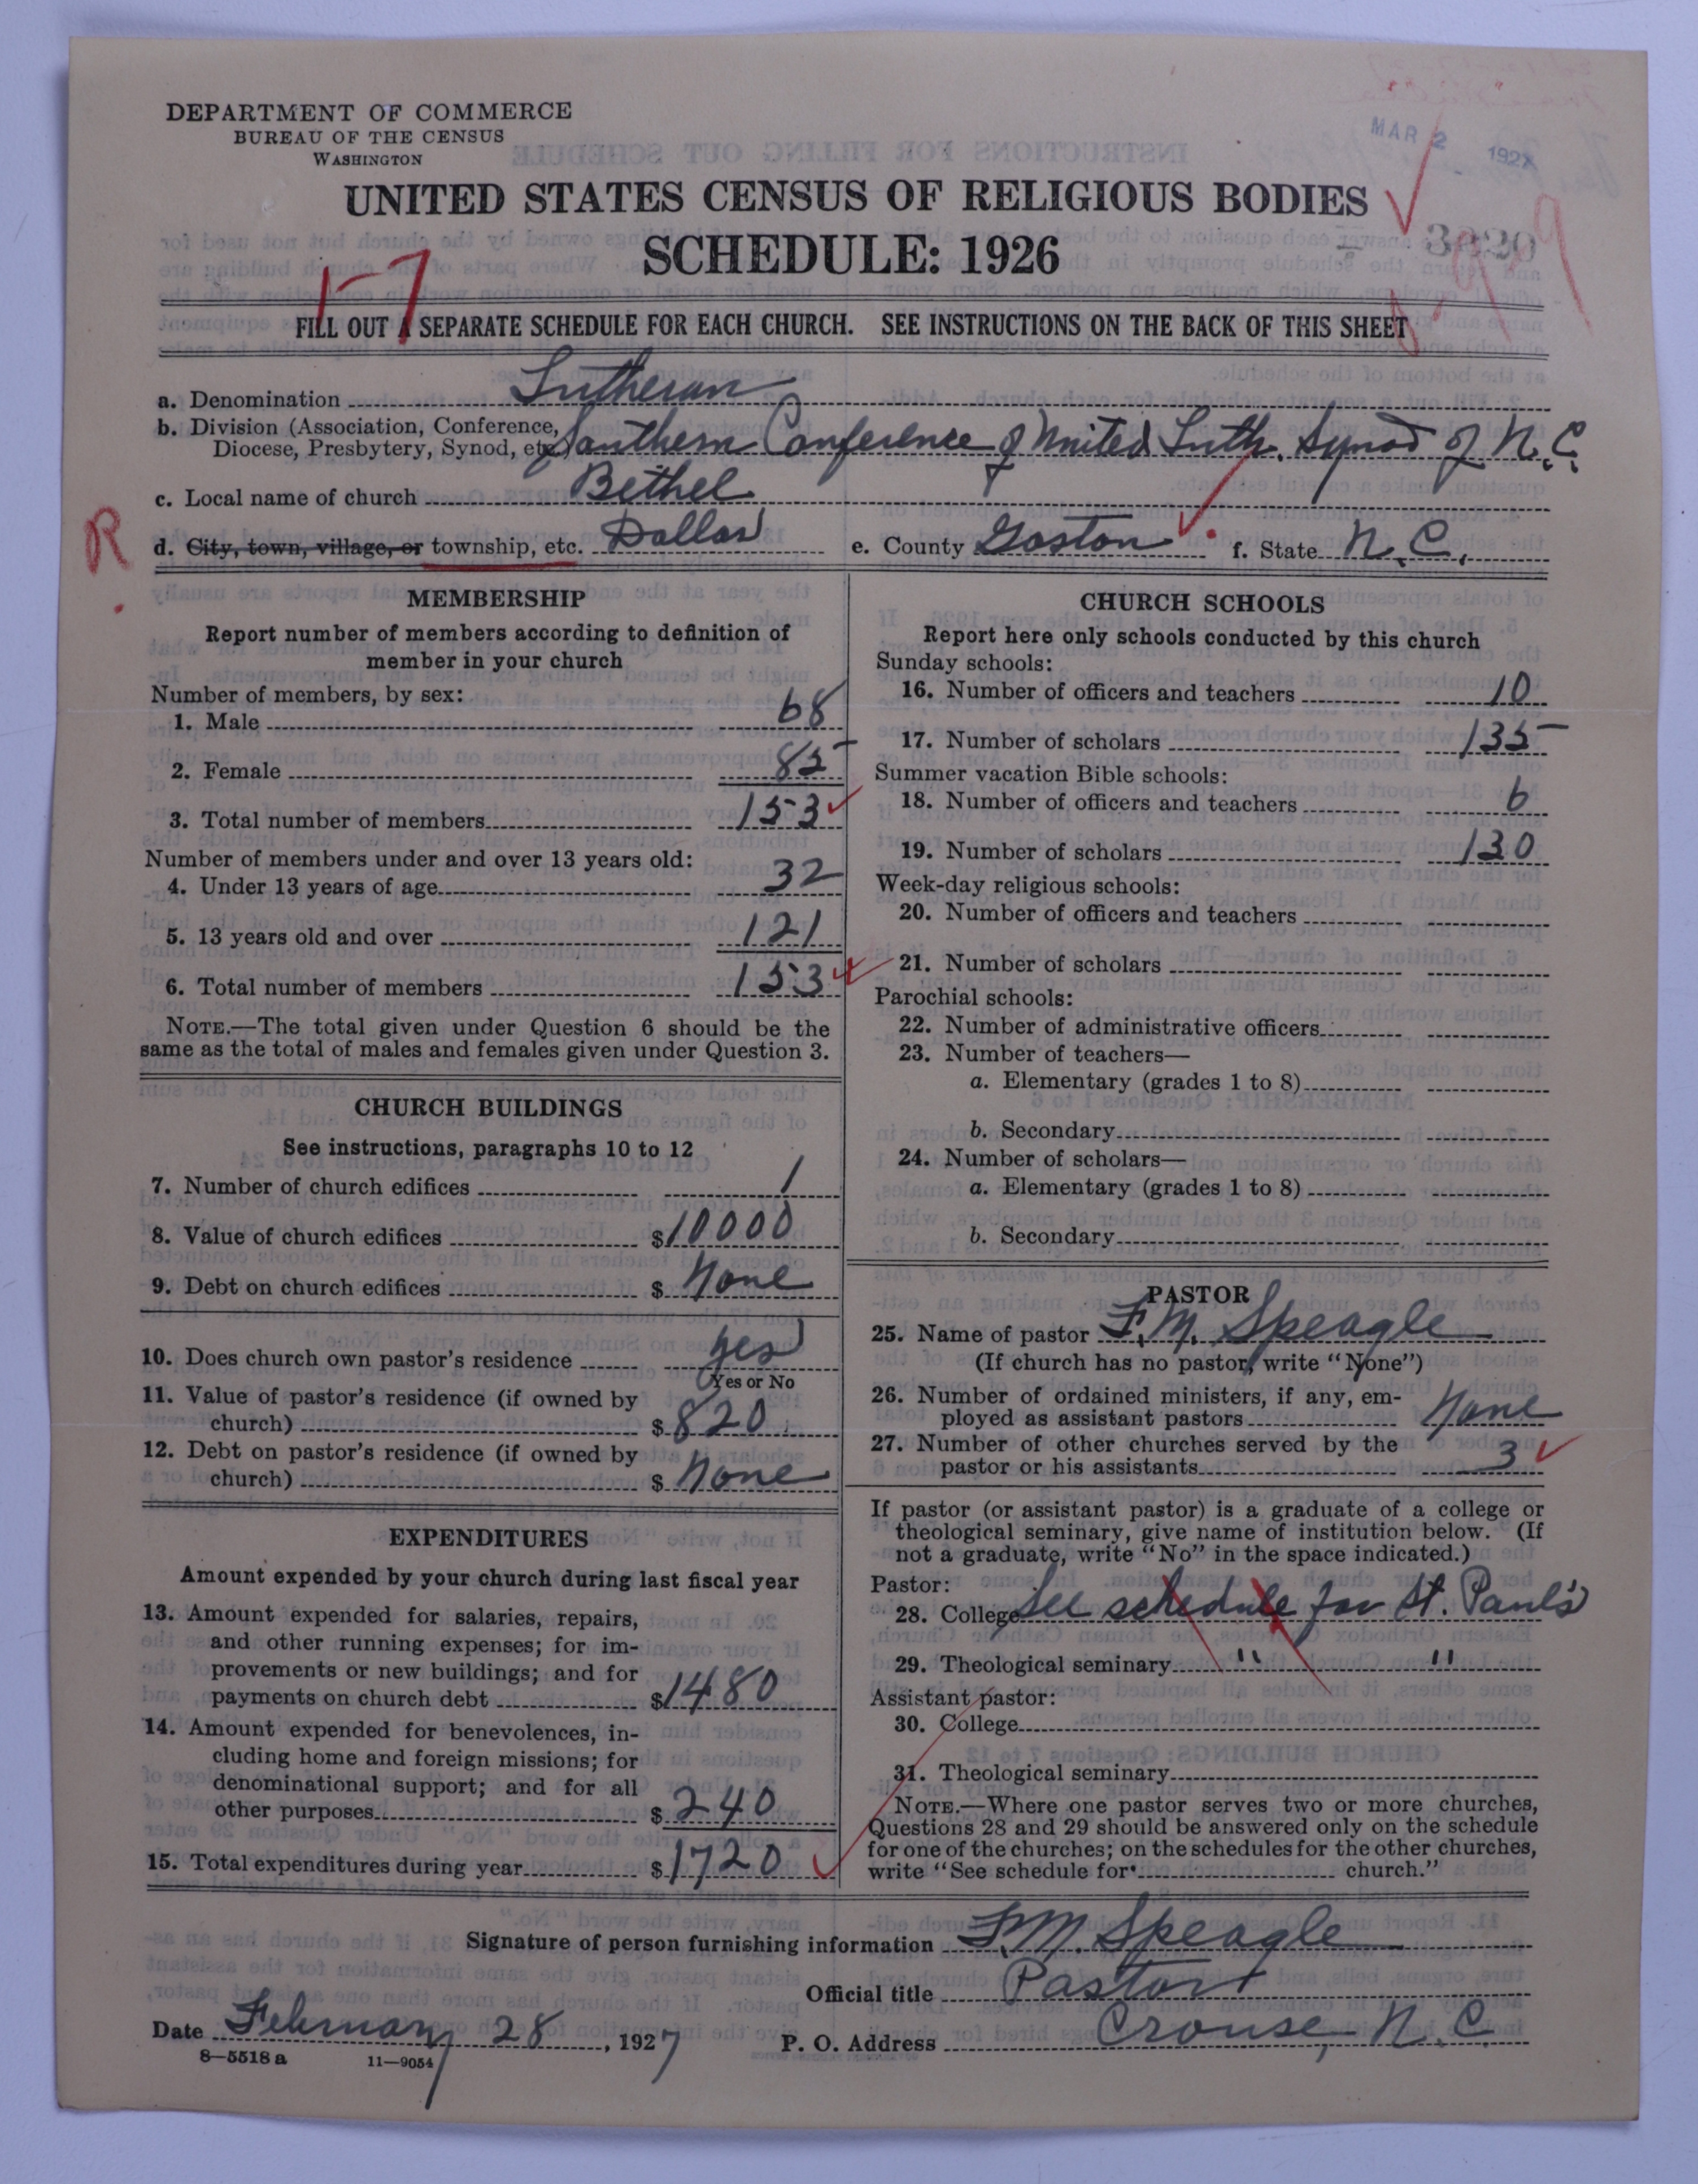 DEPARTMENT OF COMMERCE
BUREAU OF THE CENSUS
WASHINGTON
MAR 2 1927
UNITED STATES CENSUS OF RELIGIOUS BODIES
SCHEDULE: 1926
FILL OUT A SEPARATE SCHEDULE FOR EACH CHURCH. SEE INSTRUCTIONS ON THE BACK OF THIS SHEET
a. Denomination Lutheran
b. Division (Association, Conference,
Diocese, Presbytery, Synod, etc.) Southern Conference of United Luth. Synod of N.C.
c. Local name of church Bethel
R d. City, town, village, or township, etc. Dallas e. County Gaston f. State N.C.
MEMBERSHIP
Report number of members according to definition of
member in your church
Number of members, by sex:
1. Male 68
2. Female 85
3. Total number of members 153
Number of members under and over 13 years old:
4. Under 13 years of age 32
5. 13 years old and over 121
6. Total number of members 153
NOTE.—The total given under Question 6 should be the
same as the total of males and females given under Question 3.
CHURCH BUILDINGS
See instructions, paragraphs 10 to 12
7. Number of church edifices 1
8. Value of church edifices $10000
9. Debt on church edifices $ None
10. Does church own pastor's residence Yes
Yes or No
11. Value of pastor's residence (if owned by
church) $820
12. Debt on pastor's residence (if owned by
church) $ None
EXPENDITURES
Amount expended by your church during last fiscal year
13. Amount expended for salaries, repairs,
and other running expenses; for im-
provements or new buildings; and for
payments on church debt $1480
14. Amount expended for benevolences, in-
cluding home and foreign missions; for
denominational support; and for all
other purposes $240
15. Total expenditures during year $1720
CHURCH SCHOOLS
Report here only schools conducted by this church
Sunday schools:
16. Number of officers and teachers 10
17. Number of scholars 135
Summer vacation Bible schools:
18. Number of officers and teachers 6
19. Number of scholars 130
Week-day religious schools:
20. Number of officers and teachers
21. Number of scholars
Parochial schools:
22. Number of administrative officers
23. Number of teachers—
a. Elementary (grades 1 to 8)
b. Secondary
24. Number of scholars—
a. Elementary (grades 1 to 8)
b. Secondary
PASTOR
25. Name of pastor F.M. Speagle
(If church has no pastor, write "None")
26. Number of ordained ministers, if any, em-
ployed as assistant pastors None
27. Number of other churches served by the
pastor or his assistants 3
If pastor (or assistant pastor) is a graduate of a college or
theological seminary, give name of institution below. (If
not a graduate, write "No" in the space indicated.)
Pastor:
28. College See schedule for St. Paul's
29. Theological seminary " "
Assistant pastor:
30. College
31. Theological seminary
NOTE.—Where one pastor serves two or more churches,
Questions 28 and 29 should be answered only on the schedule
for one of the churches; on the schedules for the other churches,
write "See schedule for church."
Signature of person furnishing information F.M. Speagle
Official title Pastor
Date February 28, 1927 P. O. Address Crouse, N.C.
8—5518 a 11—9054